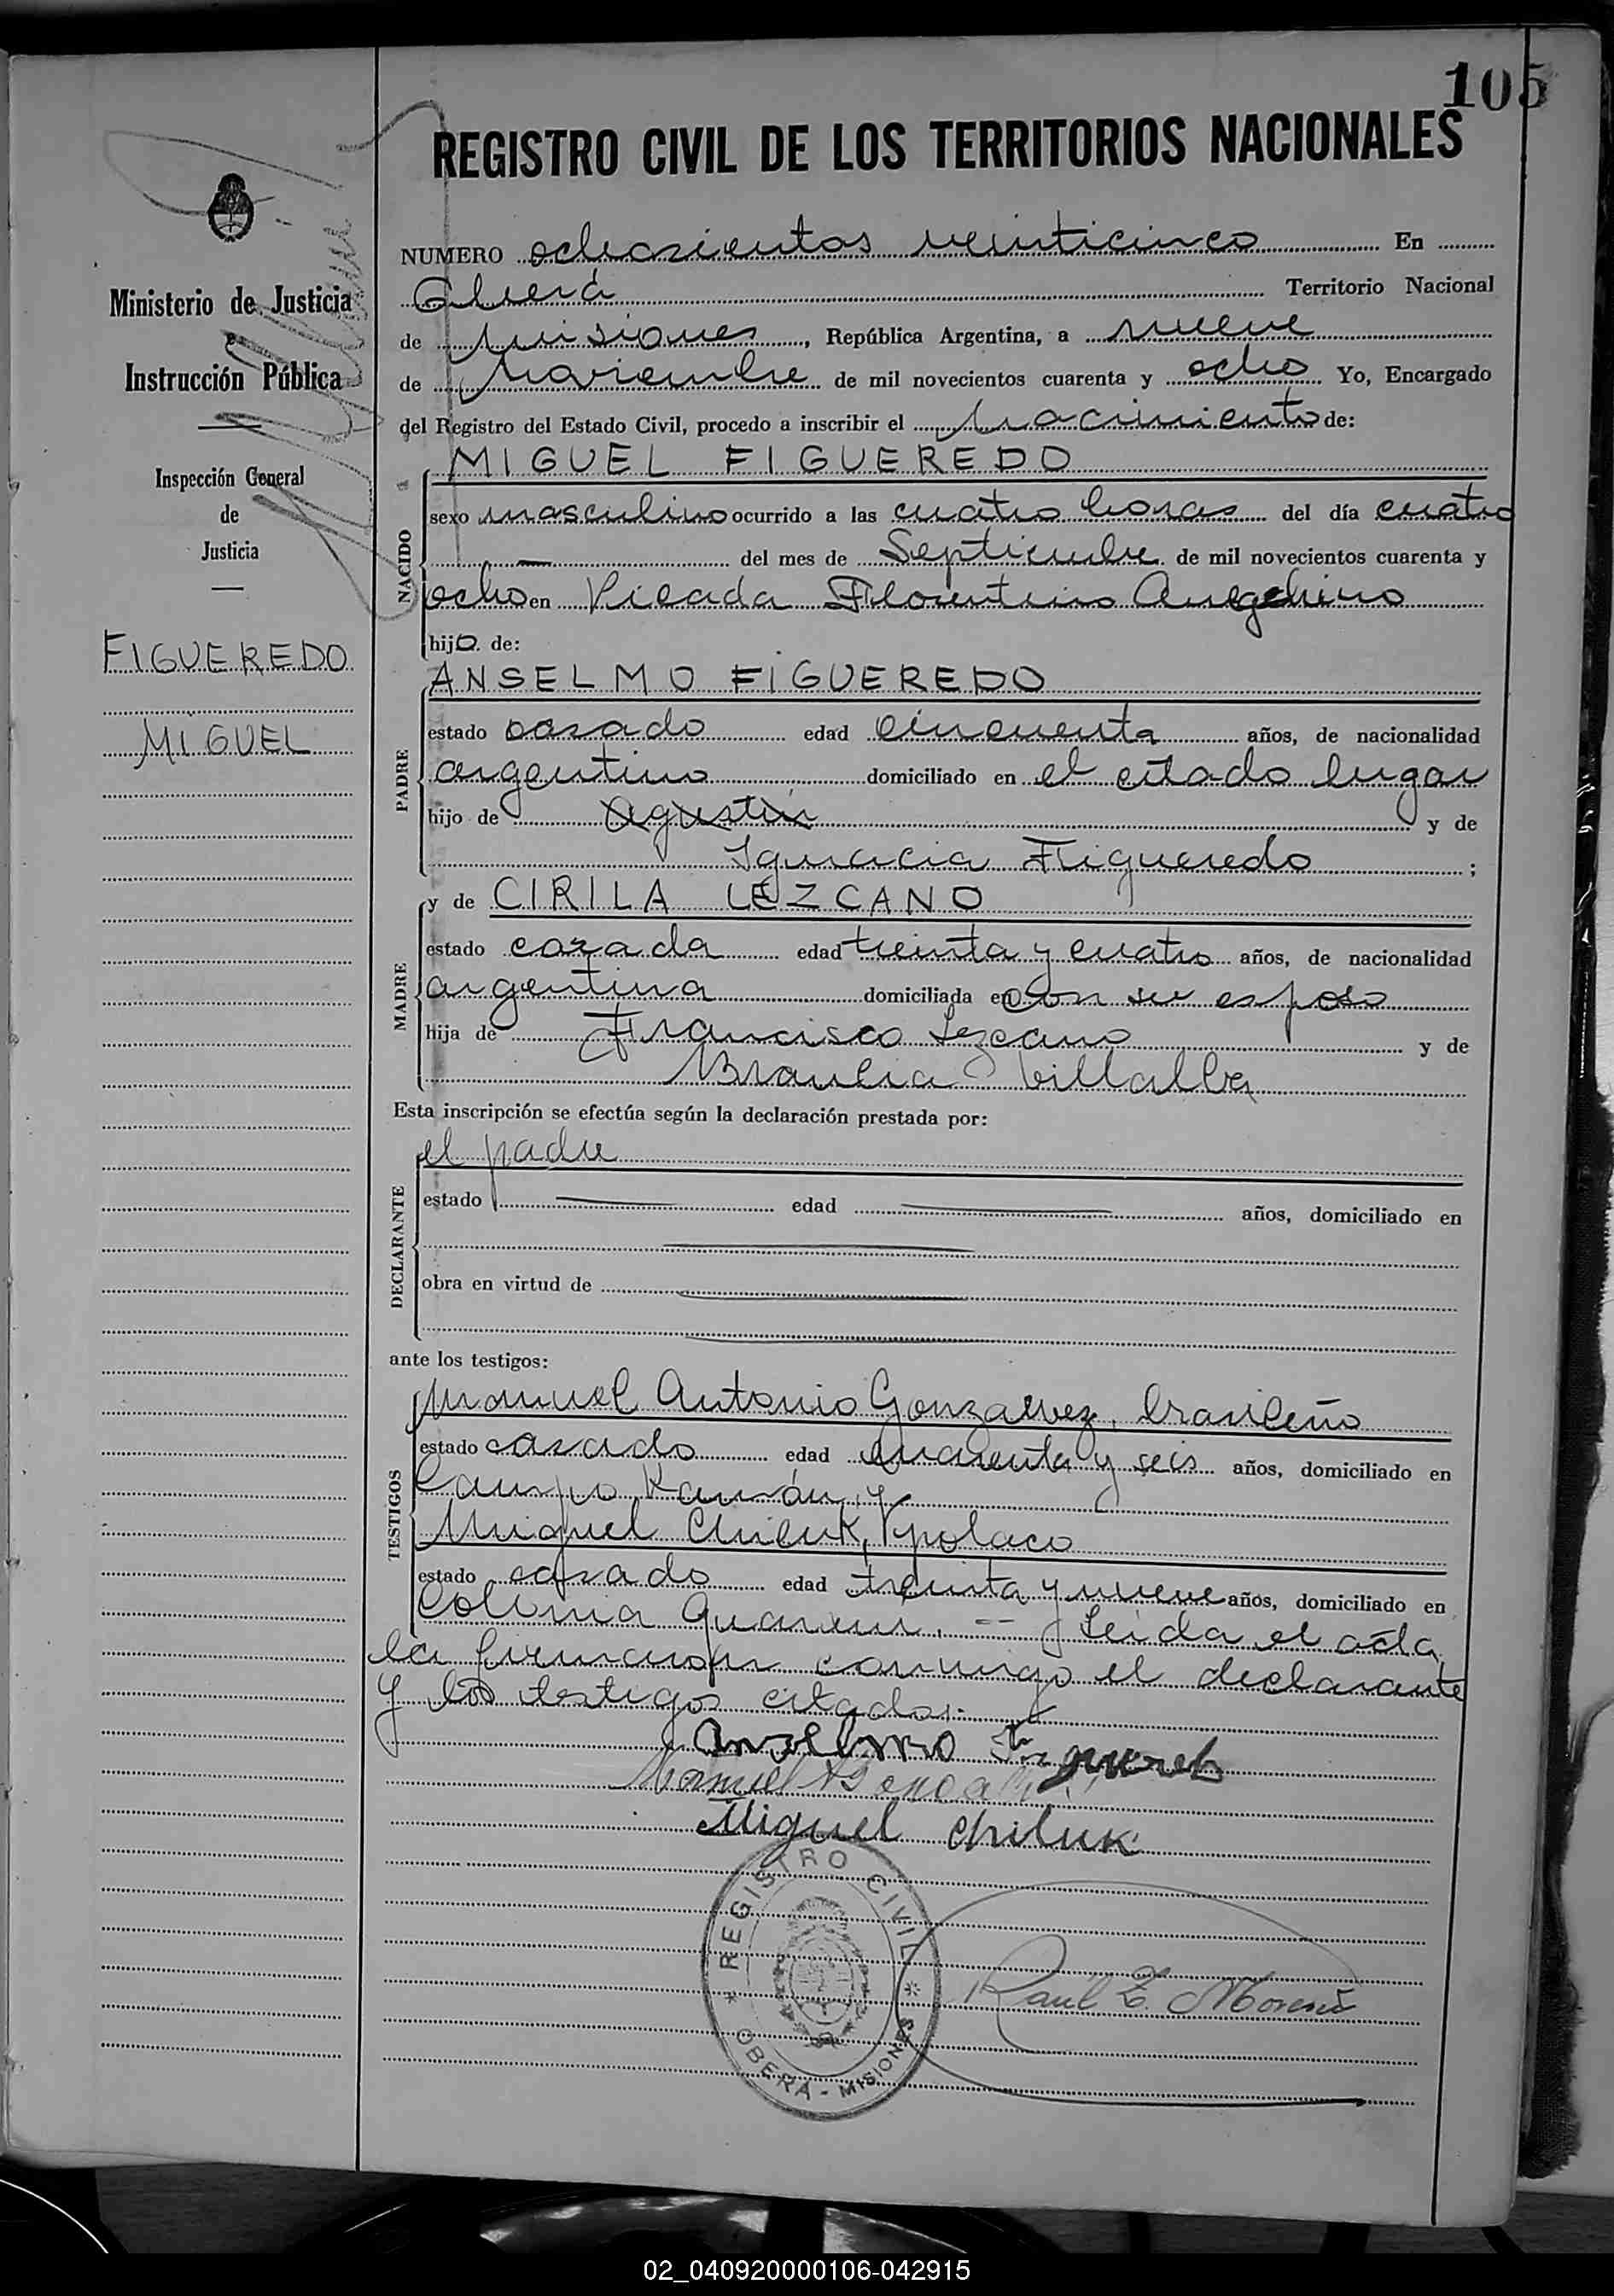 105
REGISTRO CIVIL DE LOS TERRITORIOS NACIONALES
Ministerio de Justicia
e
Instrucción Pública
Inspección General
de
Justicia
FIGUEREDO
MIGUEL
NUMERO ochocientos veinticinco En
Oberá Territorio Nacional
de Misiones, República Argentina, a nueve
de Noviembre de mil novecientos cuarenta y ocho Yo, Encargado
del Registro del Estado Civil, procedo a inscribir el Nacimiento de:
NACIDO
MIGUEL FIGUEREDO
sexo masculino ocurrido a las cuatro horas del día cuatro
— del mes de Septiembre de mil novecientos cuarenta y
ocho en Picada Florentino
hijo de:
PADRE
ANSELMO FIGUEREDO
estado casado edad cincuenta años, de nacionalidad
argentino domiciliado en el citado lugar
hijo de Agustín y de
Ignacia Figueredo ;
MADRE
y de CIRILA LEZCANO
estado casada edad treinta y cuatro años, de nacionalidad
argentina domiciliada en con su esposo
hija de Francisco Lezcano y de
Braulia Villalba
Esta inscripción se efectúa según la declaración prestada por:
DECLARANTE
el padre
estado — edad — años, domiciliado en
obra en virtud de
ante los testigos:
TESTIGOS
Manuel Antonio Gonzalvez, brasileño
estado casado edad cuarenta y seis años, domiciliado en
Campo Ramón, y
Miguel Chiluk, polaco
estado casado edad treinta y nueve años, domiciliado en
Colonia Guaraní. -- Leida el acta,
la firmaron conmigo el declarante
y los testigos citados.
Anselmo
Manuel A
Miguel Chiluk
* REGISTRO CIVIL *
OBERÁ - MISIONES
Raúl E. Moreno
02_040920000106-042915